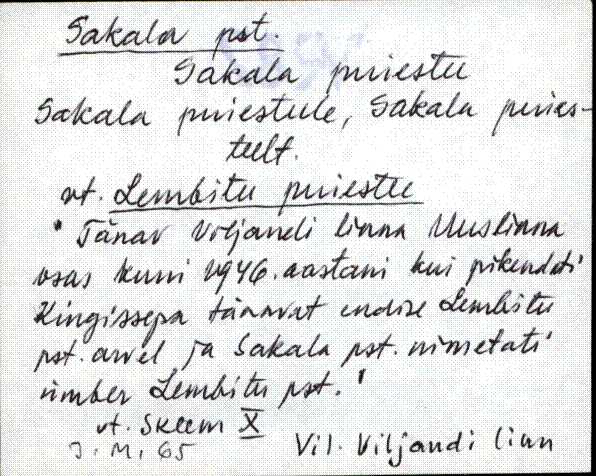 Sakala pst.
Sakala puiestee
Sakala puiesteele, Sakala puies-
teelt.
vt. Lembitu puiestee
" Tänav Viljandi linna Uuslinna
osas kuni 1946. aastani kui pikendati
Kingissepa tänavat endise Lembitu
pst. arvel ja Sakala pst. nimetati
ümber Lembitu pst. "
vt. Skeem X
J. M. 65
Vil. Viljandi linn